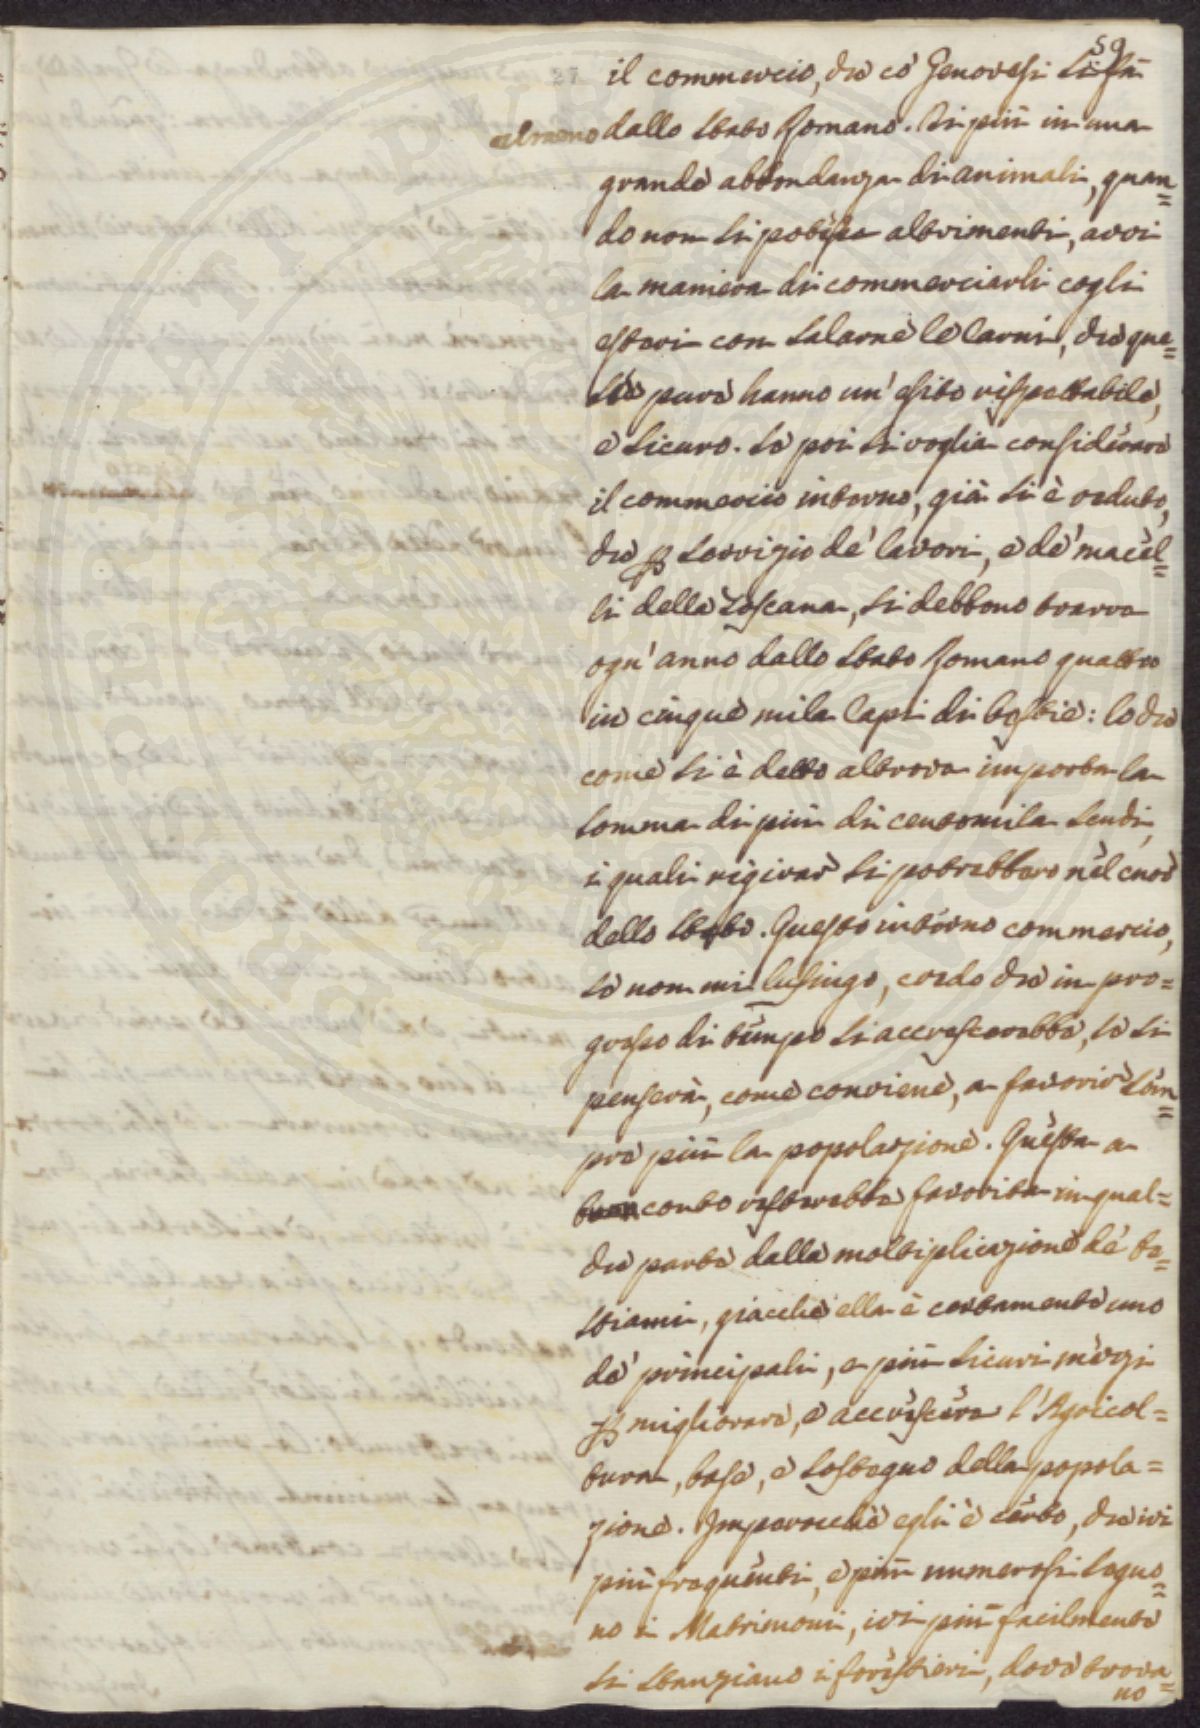 59
27
il commercio, che co' Genovesi si fà
almeno dallo Stato Romano. Di più in una
grande abbondanza di animali, quan=
do non si potesse altrimenti, avvi
la maniera di commerciarli cogli
esteri con salarne le carni, che que=
ste pure hanno un' esito rispettabile,
e sicuro. Se poi si voglia considerare
il commercio interno, già si è veduto,
che p servizio de' lavori, e de' macel=
li della Toscana, si debbono trarre
ogn' anno dallo Stato Romano quattro
in cinque mila Capi di bestie: lo che
come si è detto altrove importa la
somma di più di centomila scudi,
i quali rigirar si potrebbero nel cuor
dello Stato. Questo interno commercio,
se non mi lusingo, credo che in pro=
gresso di tempo si accrescerebbe, se si
penserà, come conviene, a favorir sem=
pre più la popolazione. Questa a
conto resterebbe favorita in qual=
che parte dalla moltiplicazione de' be=
stiami, giacchè ella è certamente uno
de' principali, e più sicuri mezzi
p migliorare, e accrescere l'Agricol=
tura, base, e sostegno della popola=
zione. Imperocchè egli è certo, che ivi
più frequenti, e più numerosi seguo=
no i Matrimoni, ivi più facilmente
si stanziano i forestieri, dove trova=
no